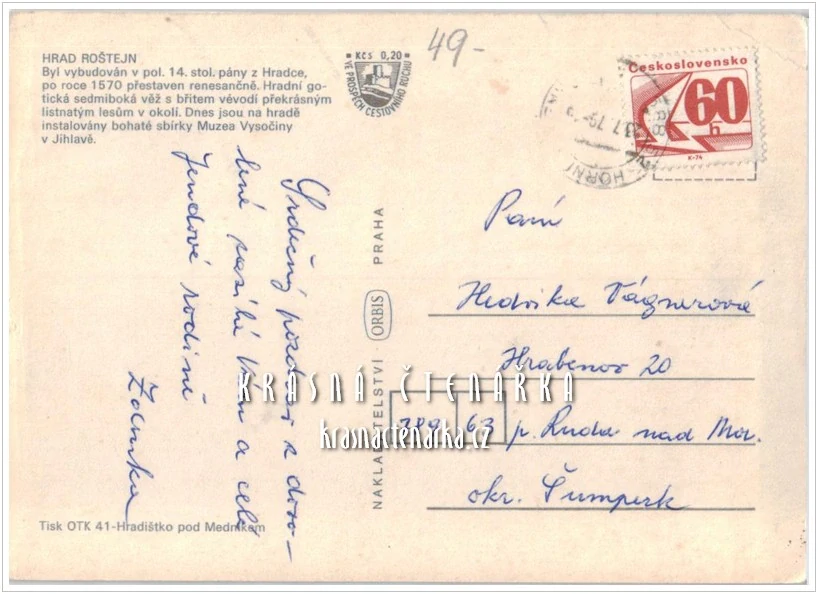 HRAD ROŠTEJN
Byl vybudován v pol. 14. stol. pány z Hradce,
po roce 1570 přestaven renesančně. Hradní go-
tická sedmiboká věž s břitem vévodí překrásným
listnatým lesům v okolí. Dnes jsou na hradě
instalovány bohaté sbírky Muzea Vysočiny
v Jihlavě.
Kčs 0,20
VE PROSPĚCH CESTOVNÍHO RUCHU
49-
Československo
60
h
K-74
HORNÍ
Srdečný pozdrav z dovo-
lené zasílá Vám a celé
Jendové rodině
Zdenka
NAKLADATELSTVÍ ORBIS PRAHA
Paní
Hedvika Vágnerová
Hrabenov 20
789 63 p. Ruda nad Mor.
okr. Šumperk
KRÁSNÁ ČTENÁŘKA
krasnactenarka.cz
Tisk OTK 41-Hradištko pod Medníkem